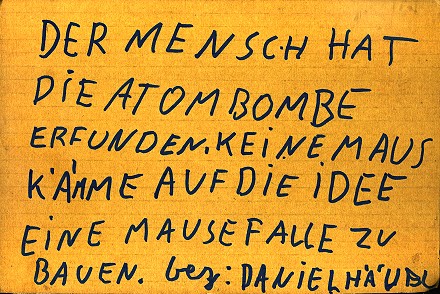 DER MENSCH HAT
DIE ATOMBOMBE
ERFUNDEN. KEINE MAUS
KÄMME AUF DIE IDEE
EINE MAUSEFALLE ZU
BAUEN. bez: DANIEL